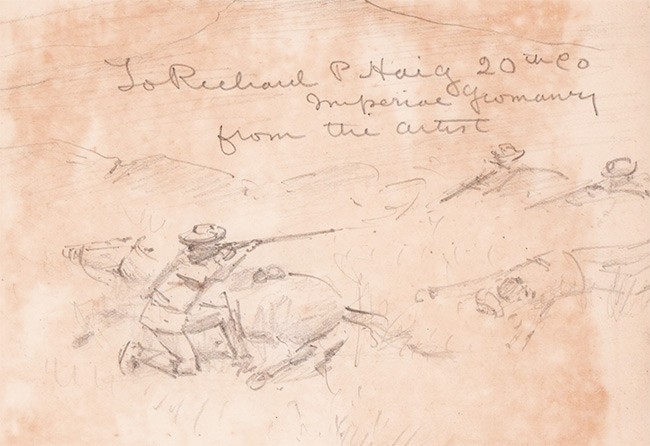 To Richard P Haig 20th Co
Imperial Yeomanry
from the artist